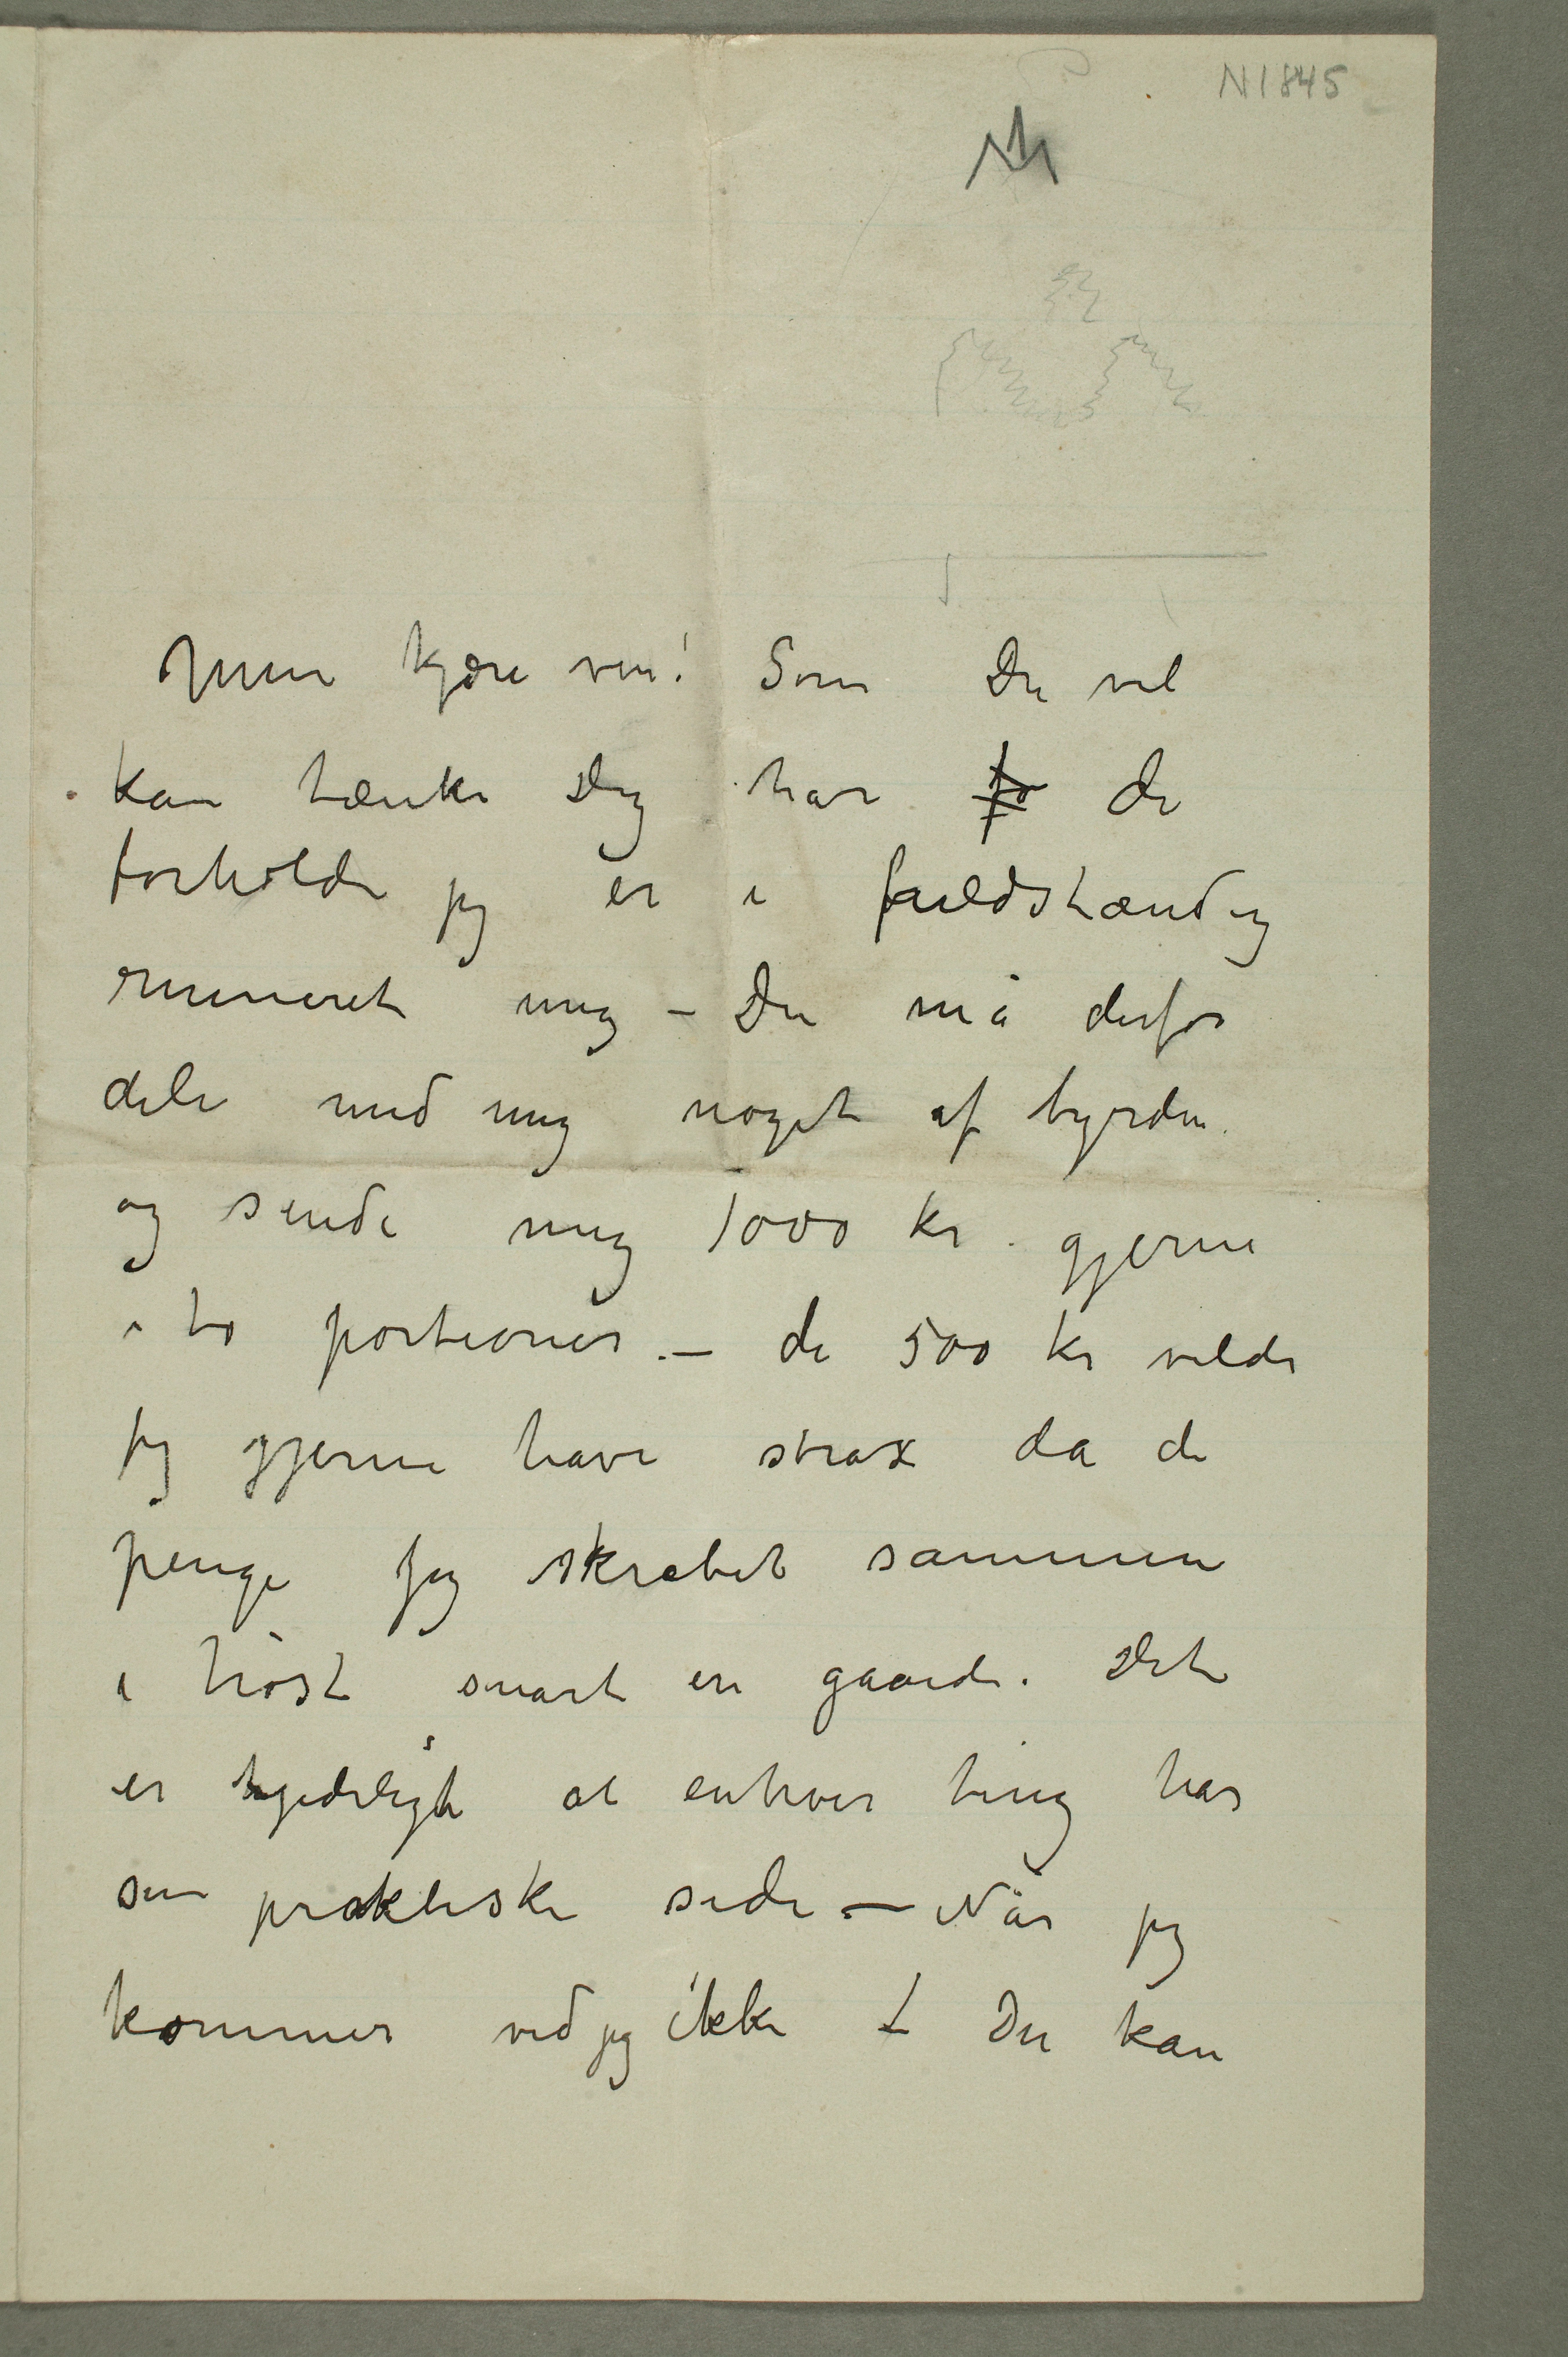 N1845
Min kjære ven! Som Du vel
kan tænke Dig har de
forholde jeg er i fuldstændig
ruineret mig – Du må derfor
dele med mig noget af byrden.
og sende mig 1000 kr. gjerne
i to portioner. – de 500 kr vilde
jeg gjerne have strax da de
penge jeg skrabet sammen
i høst snart er gaaede. Det
er kjedeligt at enhver ting har
sin praktiske side. – Når jeg
kommer ved jeg ikke – Du kan